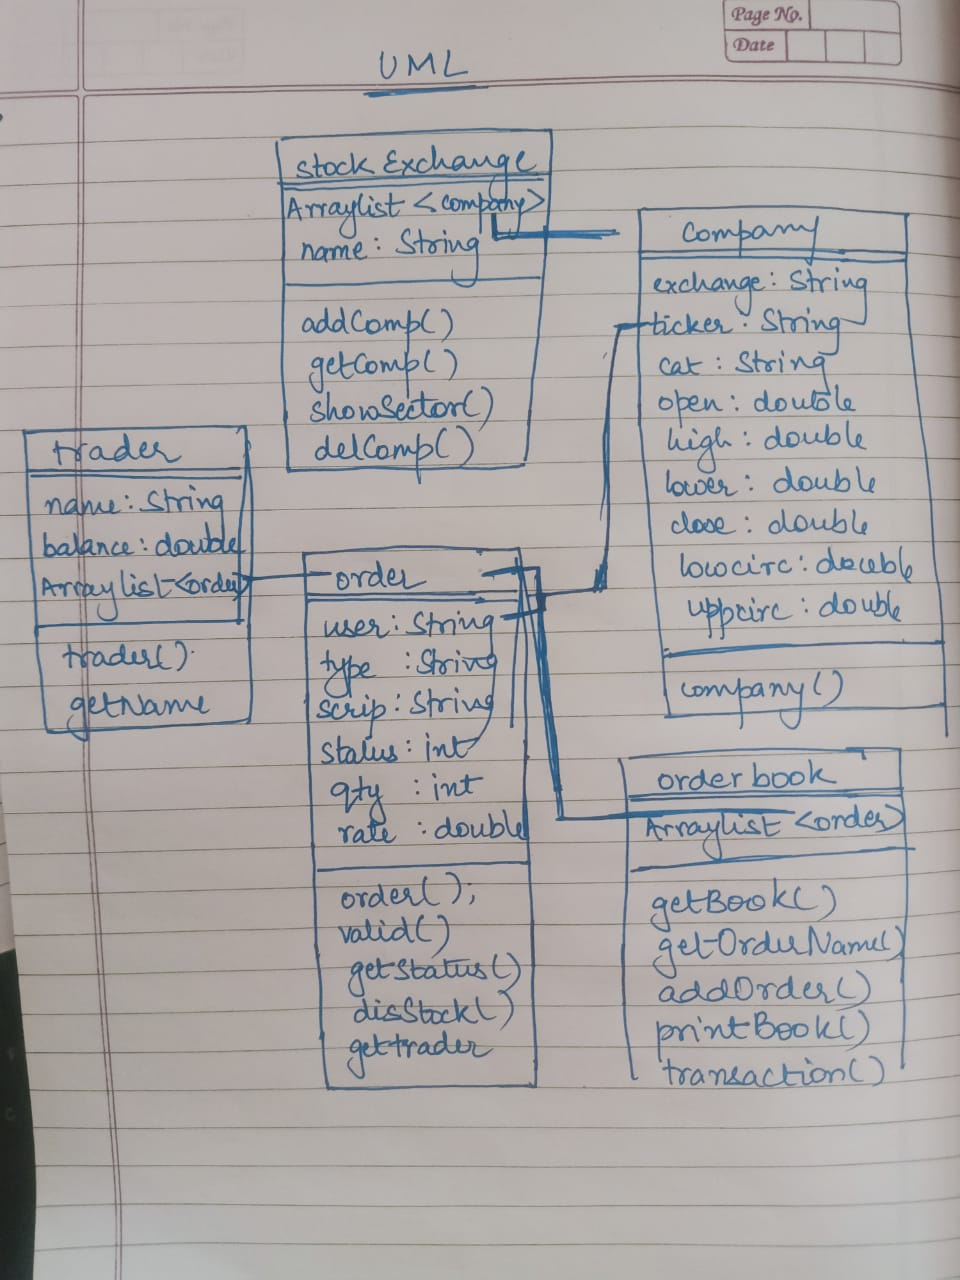 Page No.
Date
UML
stock Exchange
Arraylist <company>
name : String
addComp()
getComp()
showSector()
delComp()
Company
exchange : String
ticker : String
cat : String
open : double
high : double
lower : double
close : double
lowcirc : double
uppcirc : double
company()
trader
name : String
balance : double
Arraylist <order>
trader()
getName
order
user : String
type : String
scrip : String
status : int
qty : int
rate : double
order();
valid()
getStatus()
disStock()
gettrader
order book
Arraylist <order>
getBook()
getOrderName()
addOrder()
printBook()
transaction()